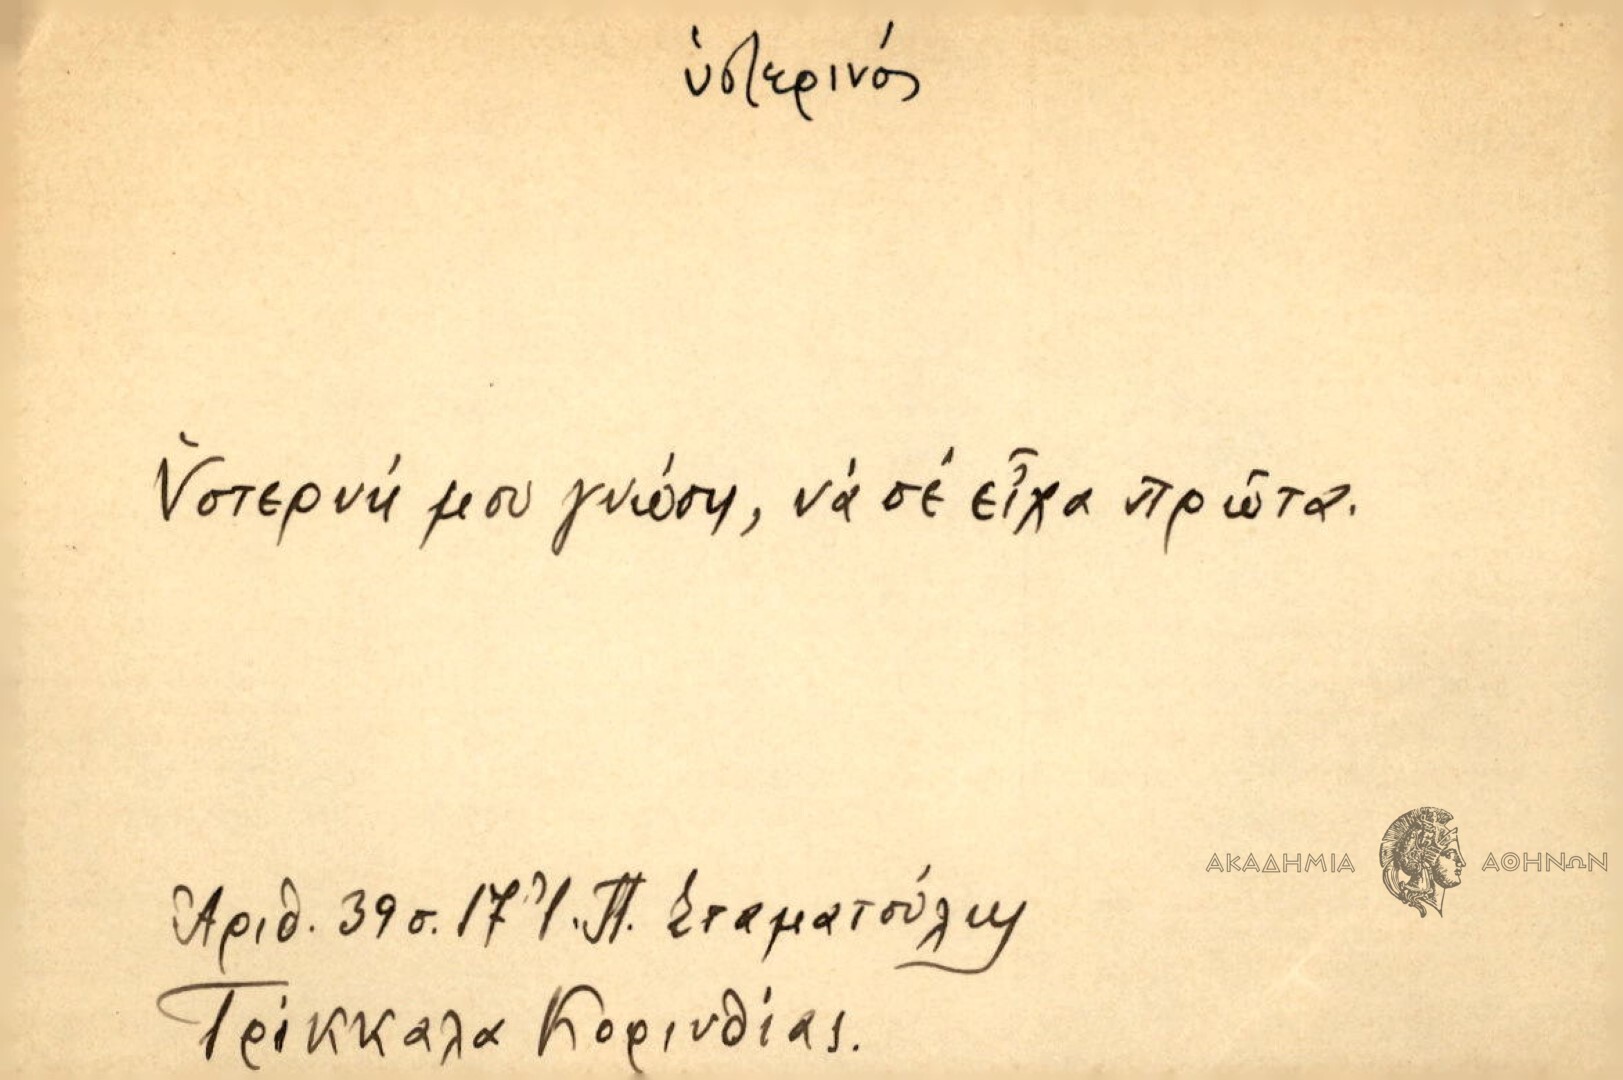 ὑστερινός
Ὑστερνή μου γνώση, νά σέ εἶχα πρῶτα.
ΑΚΑΔΗΜΙΑ ΑΘΗΝΩΝ
Ἀριθ. 39 σ. 17 Ἰ. Π. Σταματούλης
Τρίκκαλα Κορινθίας.